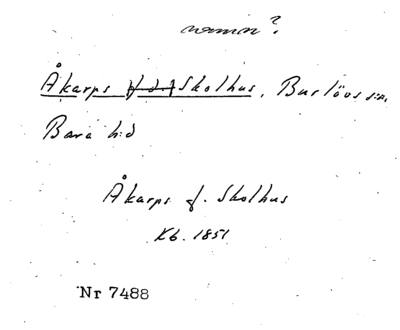 namn?
Åkarps f d Skolhus, Burlövs sn,
Bara hd
Åkarps f. Skolhus
Kb. 1851
Nr 7488